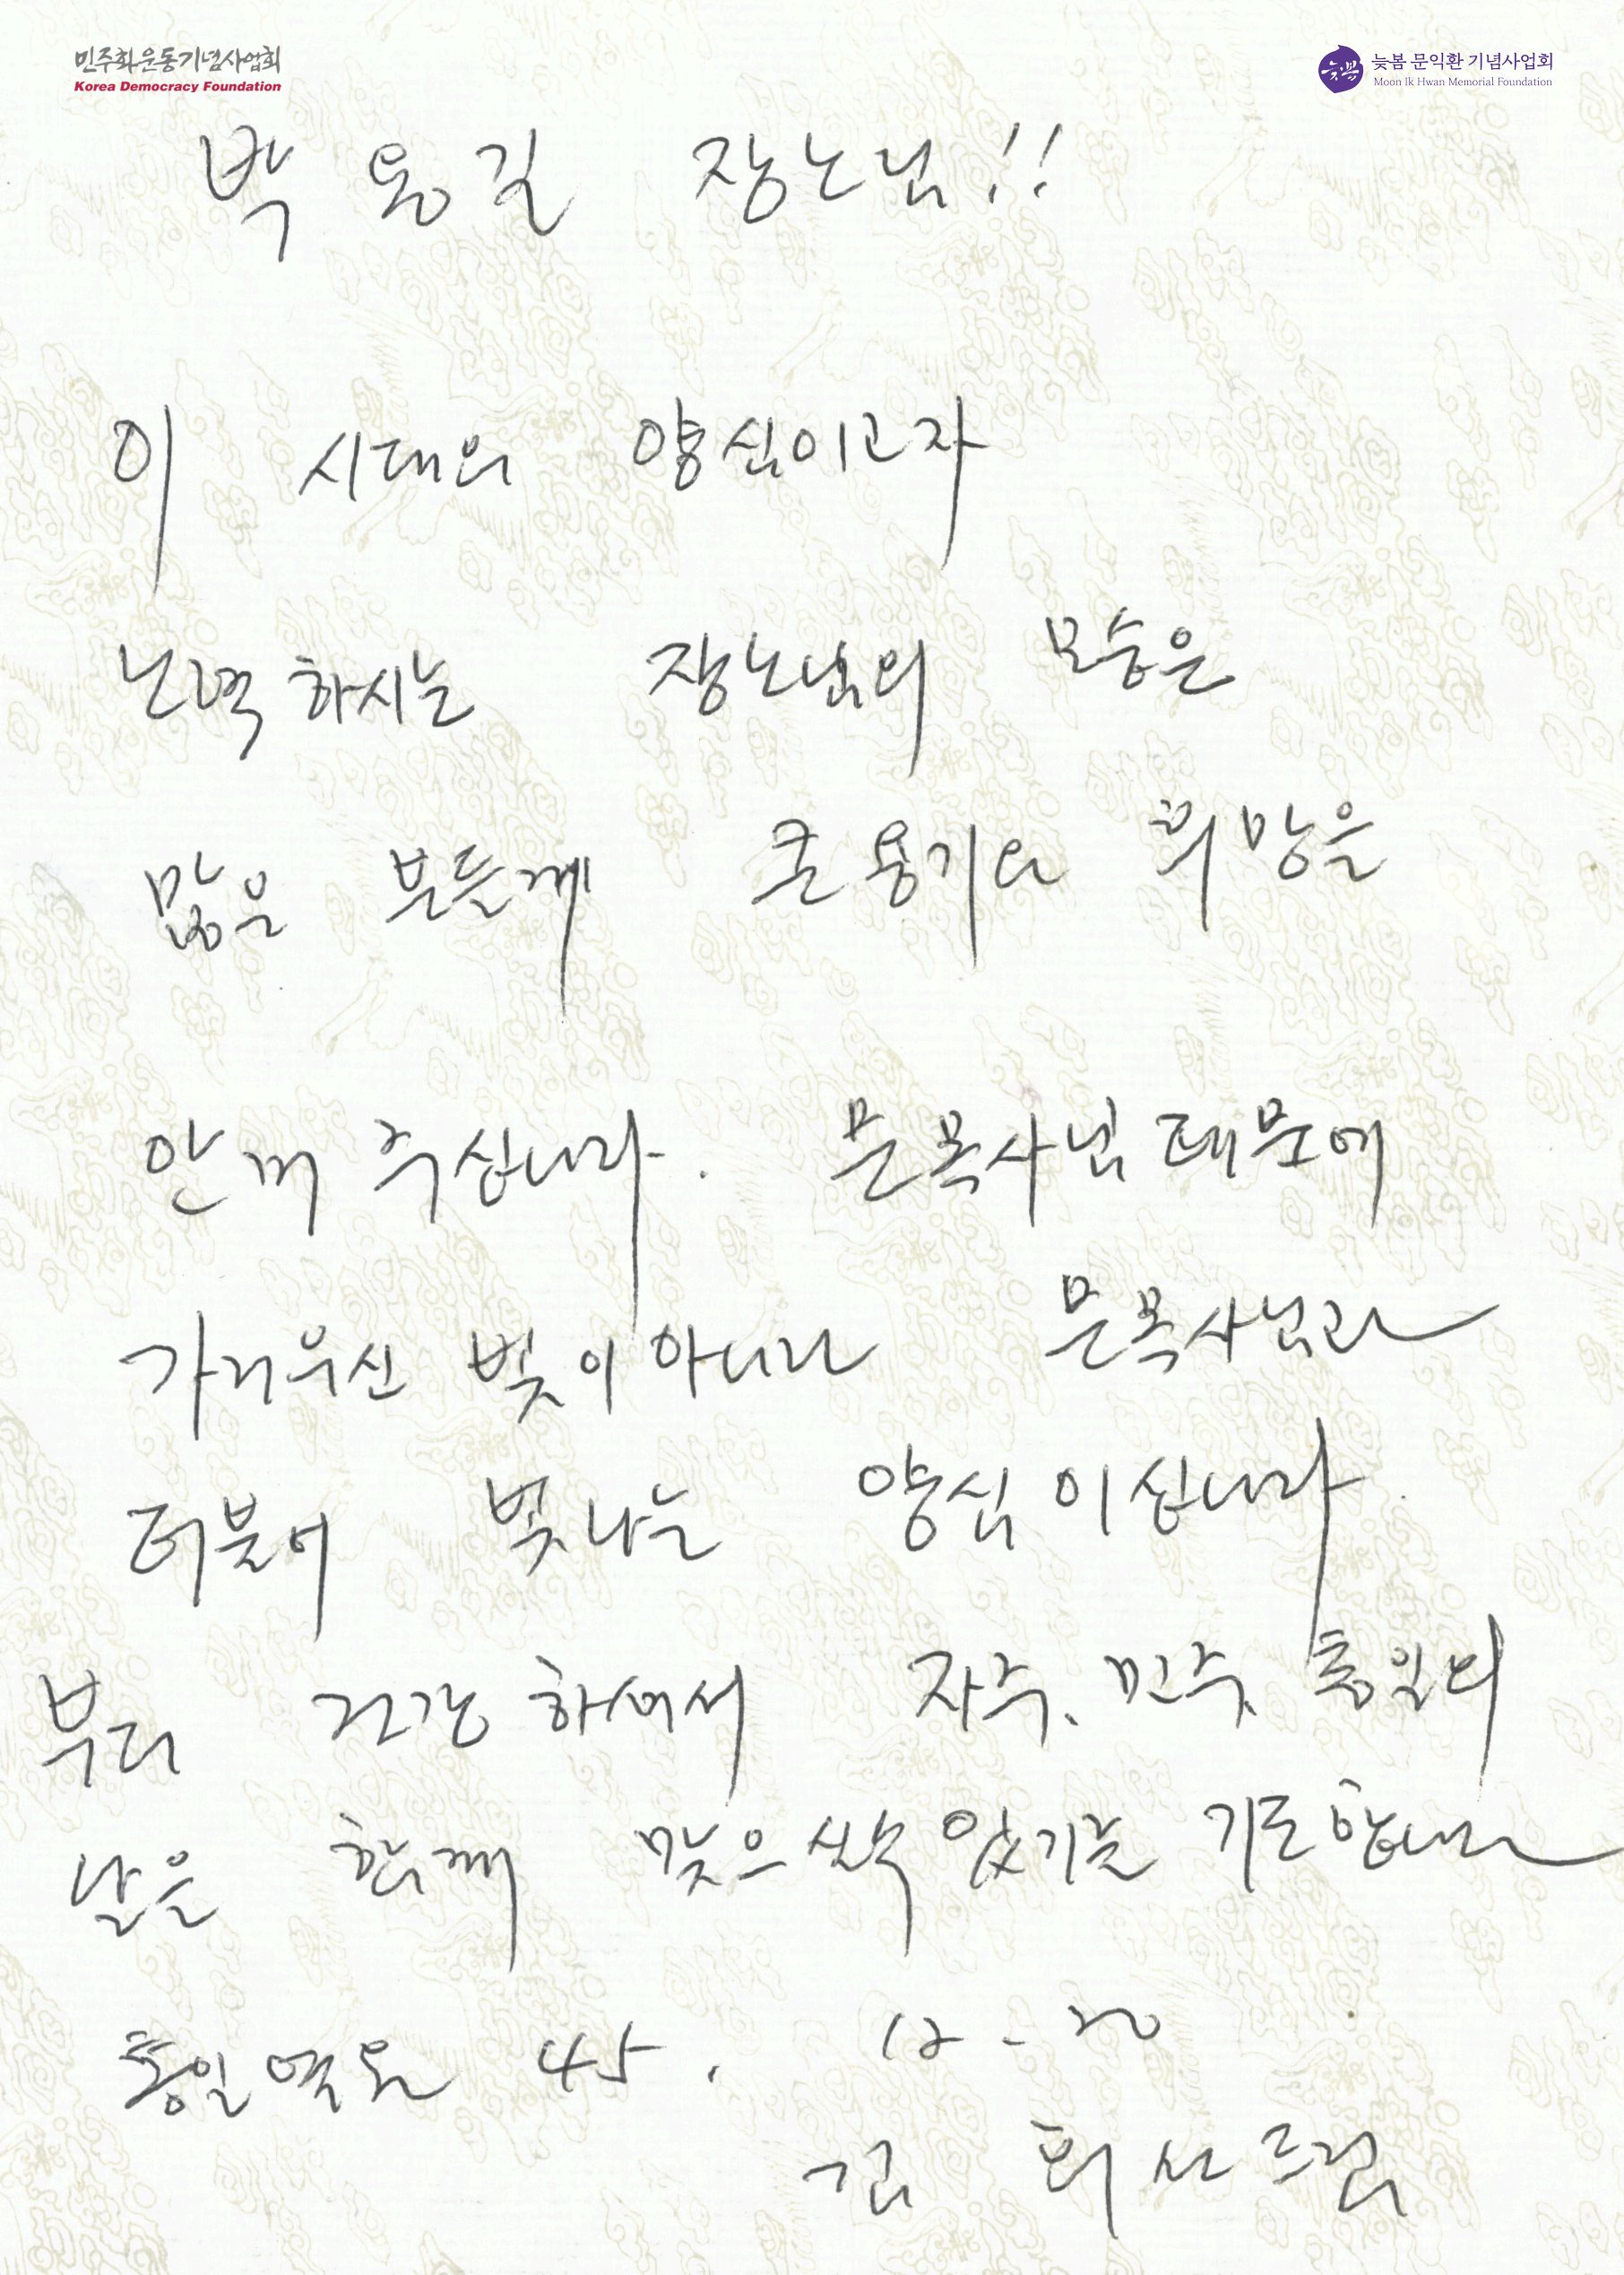 민주화운동기념사업회
Korea Democracy Foundation
늦봄
늦봄 문익환 기념사업회
Moon Ik Hwan Memorial Foundation
박 용길 장노님!!
이 시대의 양심이고자
노력하시는 장노님의 모습은
많은 분들께 큰 용기와 희망을
안껴 주십니다. 문목사님 때문에
가리우신 빛이 아니라 문목사님과
더불어 빛나는 양심이십니다.
부디 건강하셔서 자주, 민주, 통일의
날을 함께 맞으실 수 있기를 기도합니다
통일염원 45. 12-20
김 희선 드림